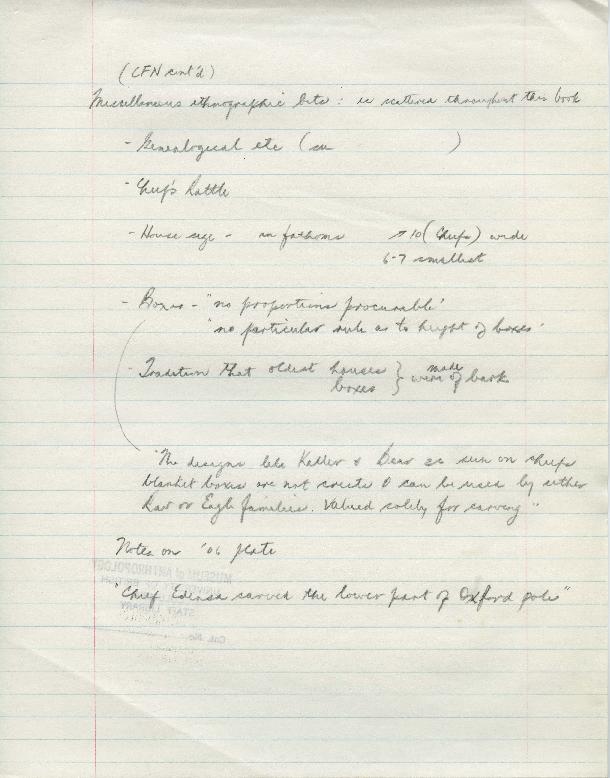 (CFN cont'd)
Miscellaneous ethnographic bits : is scattered throughout this book
- Genealogical etc (see )
- Chief's Rattle
- House size - in fathoms ↗ 10 (Chiefs) wide
6-7 smallest
- Boxes - "no proportions procurable'
"no particular rule as to height of boxes'
- Tradition that oldest houses } were made of bark
boxes
"The designs like Killer & Bear as seen on chiefs
blanket boxes are not crests & can be used by either
Raven or Eagle families. Valued solely for carving"
Notes on '06 plate
"Chief Edensa carved the lower part of Oxford pole"
MUSEUM of ANTHROPOLOGY
STAFF LIBRARY
Cat. No.